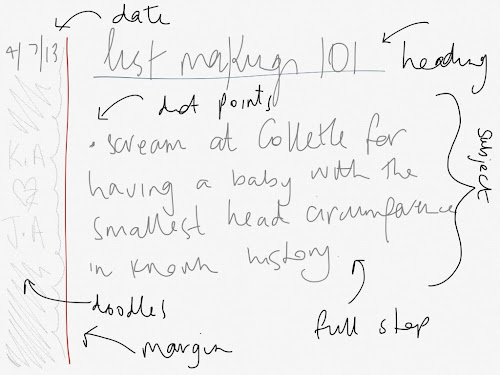 date
4/7/13
list making 101
heading
dot points
• scream at Collette for
having a baby with the
smallest head circumference
in known history.
subject
K.A
J.A
doodles
margin
full stop